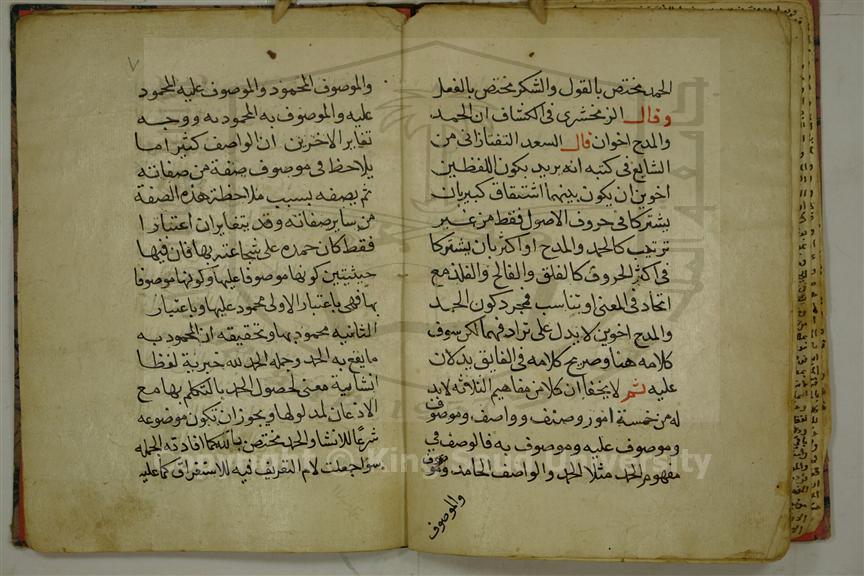 الحمد مختص بالقول والشكر مختص بالفعل
وقال الزمخشري في الكشاف ان الحمد
والمدح اخوان قال السعد التفتازاني من
الشايع في كتبه انه يريد بكون اللفظين
اخوين ان يكون بينهما اشتقاق كبير بان
يشتركا في حروف الاصول فقط من غير
ترتيب كالحمد والمدح او اكثر بان يشتركا
في اكثر الحروف كالفلق والفالح والفلذ مع
اتحاد في المعنى او تناسب فمجرد كون الحمد
والمدح اخوين لا يدل على ترادفهما لكن سوف
كلامه هنا وصريح كلامه في الفايق يدلان
عليه ثم لا يخفا ان كلا من مفاهيم الثلاثة لا بد
له من خمسة امور وصف وواصف وموصوف
وموصوف عليه وموصوف به فالوصف في
مفهوم الحمد مثلا الحمد والواصف الحامد
والموصوف
والموصوف المحمود والموصوف عليه المحمود
عليه والموصوف به المحمود به ووجه
تغاير الاخرين ان الواصف كثيرا ما
يلاحظ في موصوف صفة من صفاته
ثم يصفه بسبب ملاحظة هذه الصفة
من ساير صفاته وقد يتغايران اعتبارا
فقط كان حمده على شجاعته بها فان فيها
حيثيتين كونها موصوفا عليها وكونها موصوفا
بها فهي باعتبار الاولى محمود عليها وباعتبار
الثانيه محمود بها وتحقيقه ان المحمود به
ما يقع به الحمد وجملة الحمد لله خبرية لفظا
انشايية معنى لحصول الحمد بالتكلم بها مع
الاذعان لمدلولها ويجوز ان تكون موضوعه
شرعا للانشا والحمد مختص بالله كما افادته الجمله
سوا جعلت لام التعريف فيه للاستغراق كما عليه
Copyright © King Saud University